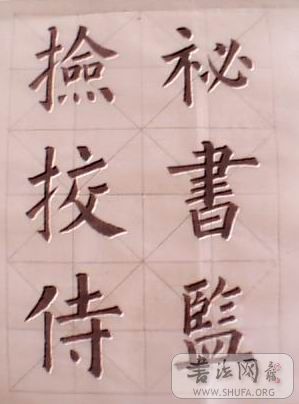 祕書監
撿挍侍
书法网
WWW.SHUFA.ORG